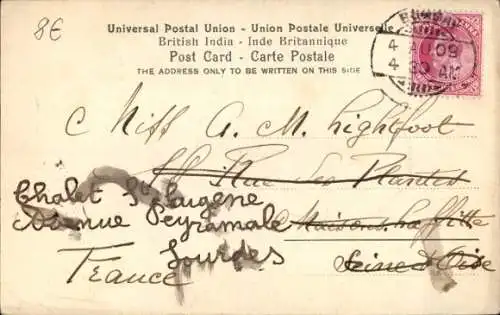 8€
Universal Postal Union - Union Postale Universelle
British India - Inde Britannique
Post Card - Carte Postale
THE ADDRESS ONLY TO BE WRITTEN ON THIS SIDE
BOMBAY
4 AU 09
4 30 AM
Miss A. M. Lightfoot
Rue des Plantes
Maisons Laffitte
Seine & Oise
Chalet St Eugene
Avenue Peyramale
Lourdes
France